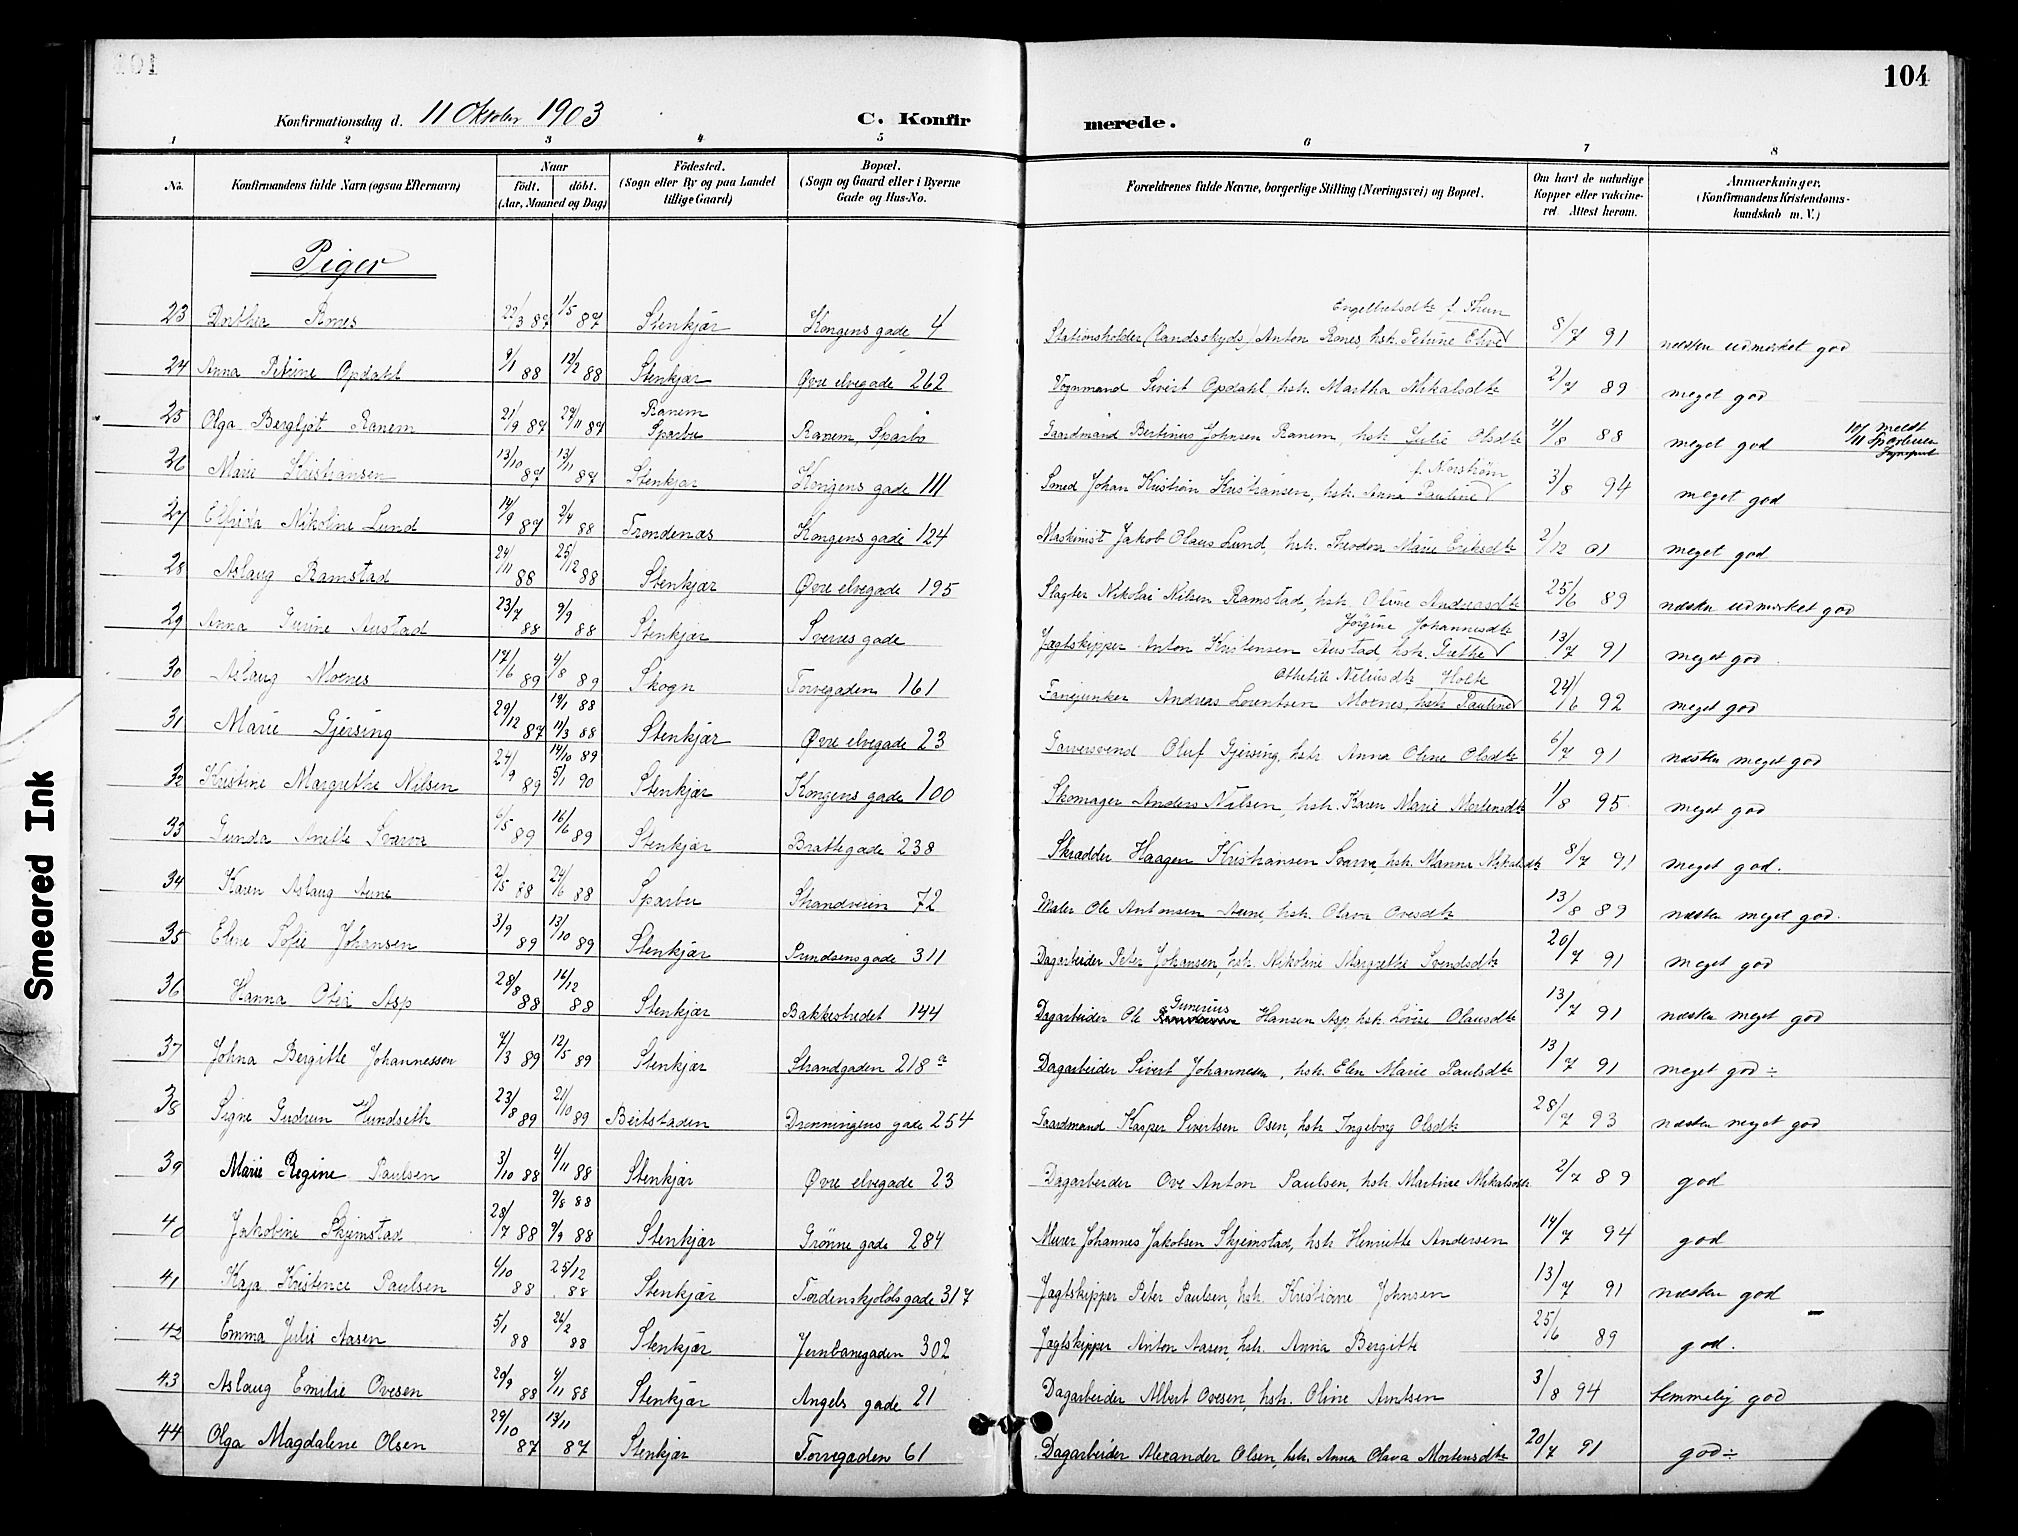 104
Konfirmationsdag d. 11 Oktober 1903 C. Konfirmerede.
1 2 3 4 5 6 7 8
No. Konfirmandens fulde Navn (ogsaa Efternavn) Naar födt. döbt. (Aar, Maaned og Dag) Födested. (Sogn eller By og paa Landet tillige Gaard) Bopæl. (Sogn og Gaard eller i Byerne Gade og Hus-No. Forældrenes fulde Navne, borgerlige Stilling (Næringsvei) og Bopæl. Om havt de naturlige Kopper eller vakcineret Attest herom. Anmærkninger, (Konfirmandens Kristendomskundskab m. V.)
Piger
Engelbretsdtr f. Thun
23 Dorthea Rones 22/3 87 1/5 87 Stenkjær Kongens gade 4 Stationsholder (Landsskyds) Anton Rones, hstr. Petrine 8/7 91 næsten udmærket god
24 Anna Petrine Opdahl 9/1 88 12/2 88 Stenkjær Øvre elvegade 262 Vognmand Sivert Opdahl, hstr. Martha Mikalsdtr 2/7 89 meget god
25 Olga Bergljot Ranem 21/9 87 27/11 87 Ranem Sparbu Ranem, Sparbo Gaardmand Bertinus Johnsen Ranem, hstr. Julie Olsdtr 4/8 88 meget god 10/11 meldt Sparbuen
f. Norström
26 Marie Kristiansen 13/10 87 13/11 87 Stenkjær Kongens gade 111 Smed Johan Kristian Kristiansen, hstr. Anna Pauline 3/8 94 meget god
27 Elfrida Nikoline Lund 14/9 87 2/4 88 Trondenæs Kongens gade 124 Maskinist Jakob Olaus Lund, hstr. Theodora Marie Eriksdtr 2/12 01 meget god
28 Aslaug Ramstad 24/11 88 25/12 88 Stenkjær Øvre elvegade 195 Slagter Nikolai Nilsen Ramstad, hstr. Oline Andreasdtr 25/6 89 næsten udmærket god
Jørgine Johannesdtr
29 Anna Gurine Austad 23/7 88 9/9 88 Stenkjær Sverres gade Jægtskipper Anton Kristensen Austad, hstr. Grethe 13/7 91 meget god.
Nilsdtr Holte
30 Aslaug Moenes 17/6 89 4/8 89 Skogn Torvegaden 161 Fanejunker Andreas Lorentsen Moenes, hstr. Pauline 24/6 92 meget god
31 Marie Gjersing 29/12 87 19/1 88 11/3 88 Stenkjær Øvre elvegade 23 Garversvend Oluf Gjersing, hstr. Anna Oline Olsdtr 6/7 91 næsten meget god
32 Kristine Margrethe Nilsen 24/9 89 14/10 89 5/1 90 Stenkjær Kongens gade 100 Skomager Anders Nilsen, hstr. Karen Marie Mortensdtr 1/8 95 meget god
33 Gunda Anette Svarva 6/5 89 16/6 89 Stenkjær Brattegade 238 Skrædder Haagen Kristiansen Svarva, hstr. Manna Mikalsdtr 8/7 91 meget god.
34 Karen Aslaug Aune 2/5 88 24/6 88 Sparbu Strandveien 72 Maler Ole Antonsen Aune hstr. Olava Ovesdtr 13/8 89 næsten meget god.
35 Elene Sofie Johansen 3/9 89 13/10 89 Stenkjær 311 Dagarbeider Peter Johansen, hstr. Nikoline Margrethe Svendsdtr 20/7 91 meget god
36 Hanna Otea Asp 28/8 88 16/12 88 Stenkjær Bakkestrædet 144 Dagarbeider Ole Gunerius Hansen Asp hstr. Lovise Olausdtr 13/7 91 næsten meget god
37 Johna Bergitte Johannessen 7/3 89 12/5 89 Stenkjær Strandgaden 218 a Dagarbeider Sivert Johannesen, hstr. Elen Marie Paulsdtr 13/7 91 meget god ÷
38 Signe Gudrun Hundseth 23/8 89 21/10 89 Beitstaden Dronningens gade 254 Gaardmand Kasper Sivertsen Osen, hstr. Ingeborg Olsdtr 28/7 93 næsten meget god
39 Marie Regine Paulsen 3/10 88 4/11 88 Stenkjær Øvre elvegade 23 Dagarbeider Ove Anton Paulsen, hstr. Martine Mikalsdtr 2/7 89 god
40 Jakobine Skjemstad 28/7 88 9/8 88 9/9 88 Stenkjær Grönne gade 284 Murer Johannes Jakobsen Skjemstad, hstr. Henriette Andersen 14/7 94 god
41 Kaja Kristence Paulsen 4/10 88 25/12 88 Stenkjær Tordenskjolds gade 317 Jægtskipper Peter Paulsen, hstr. Kristiane Johnsen 13/7 91 næsten god
42 Emma Julie Aasen 5/1 88 26/2 88 Stenkjær Jernbanegaden 302 Jægtskipper Anton Aasen, hstr. Anna Bergitte 25/6 89 god.
43 Aslaug Emilie Ovesen 29/9 88 4/11 88 Stenkjær Angels gade 21 Dagarbeider Albert Ovesen, hstr. Oline Arntsen 3/8 94 temmelig god
44 Olga Magdalene Olsen 29/10 87 13/11 87 Stenkjær Torvegaden 61 Dagarbeider Alexander Olsen, hstr. Anna Olava Mortensdtr 20/7 91 god ÷
Smeared Ink